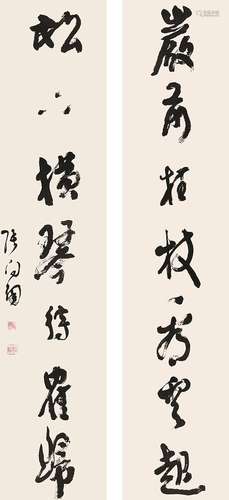 巖前拄杖看雲起
松下橫琴待鶴歸